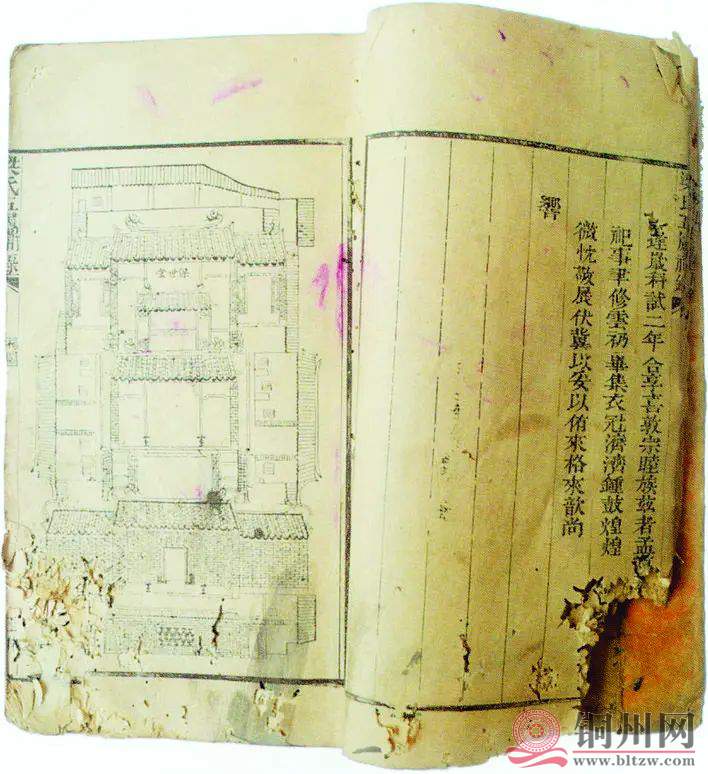 逢歲科試二年合享喜敦宗睦族茲者孟
祀事聿修雲礽畢集衣冠濟濟鍾鼓煌煌
微忱敬展伏冀以妥以侑來格來歆尚
饗
保世堂
铜州网
www.bltzw.com